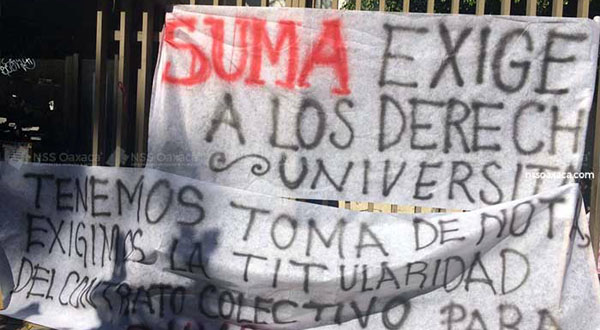 SUMA EXIGE
A LOS DERECH
UNIVERSIT
NSS Oaxaca
nssoaxaca.com
TENEMOS TOMA DE NOTA
EXIGIMOS LA TITULARIDAD
DEL CONTRATO COLECTIVO PARA